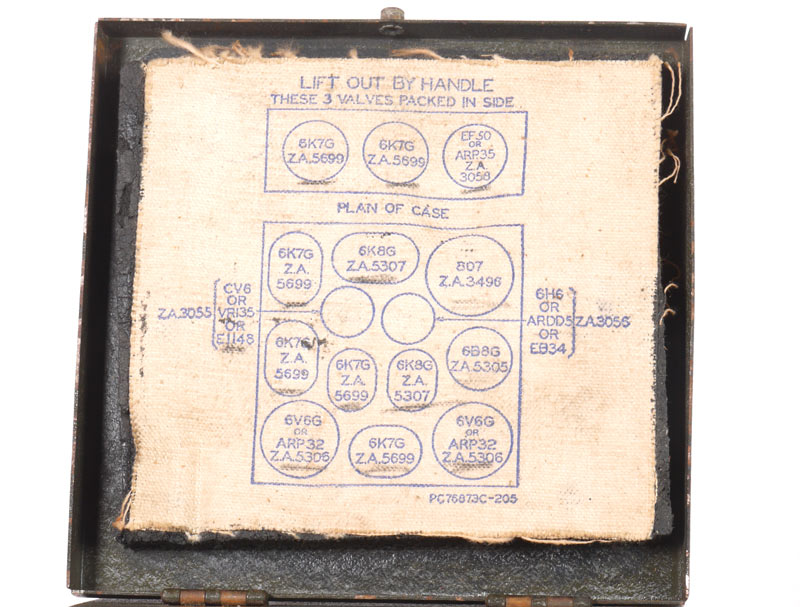 LIFT OUT BY HANDLE
THESE 3 VALVES PACKED IN SIDE
6K7G
Z.A.5699
6K7G
Z.A.5699
EF50
OR
ARP35
Z.A.
3058
PLAN OF CASE
6K7G
Z.A.
5699
6K8G
Z.A.5307
807
Z.A.3496
Z.A.3055
CV6
OR
VR135
OR
E1148
6H6
OR
ARDD5
OR
EB34
Z.A.3056
6K7G
Z.A.
5699
6K7G
Z.A.
5699
6K8G
Z.A.
5307
6B8G
Z.A.5305
6V6G
OR
ARP32
Z.A.5306
6K7G
Z.A.5699
6V6G
OR
ARP32
Z.A.5306
PC76873C-205